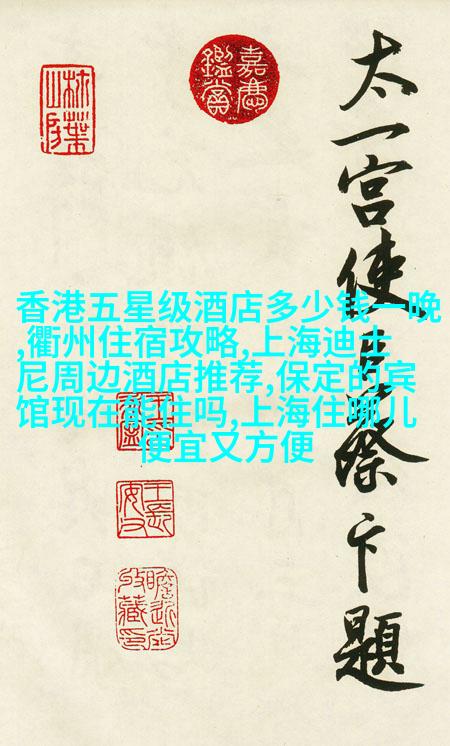 嘉慶鑑賞
太一宫使臣蔡卞題
香港五星级酒店多少钱一晚
,衢州住宿攻略,上海迪士
尼周边酒店推荐,保定的宾
馆现在能住吗,上海住哪儿
便宜又方便